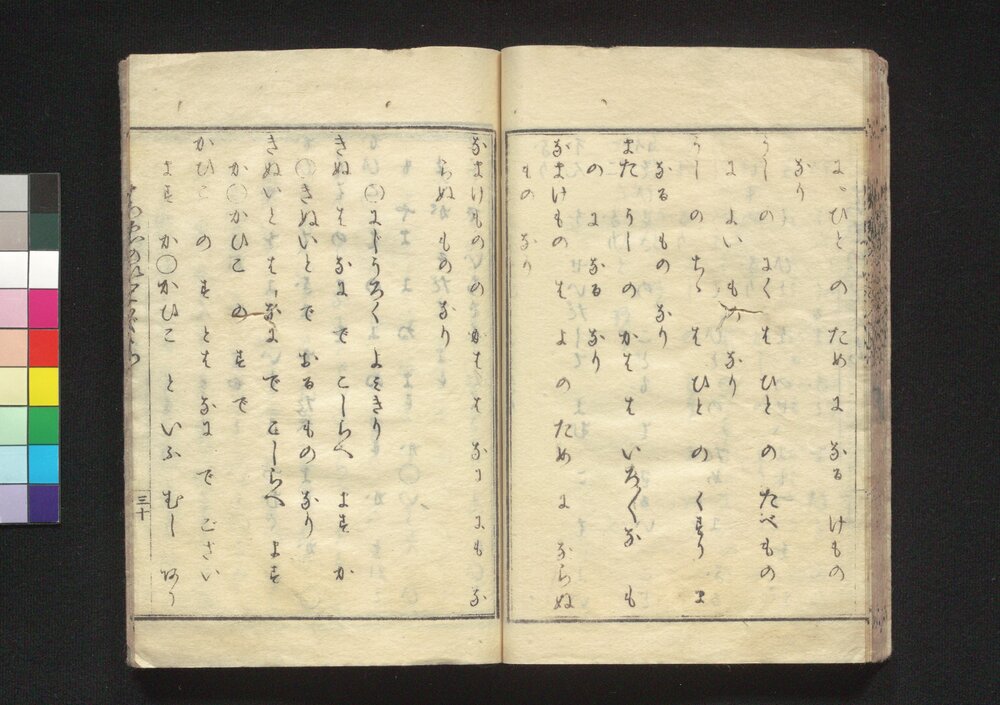 に、ひと の ため に なる けもの
なり
うし の にく は ひと の たべもの
に よい もの なり
うし の ちゝ は ひと の くすり に
なる もの なり
また うし の かは は いろ〱な も
の に なる なり
なまけもの は よ の ため に ならぬ
もの なり
なまけもの の かは は なに にも な
らぬ もの なり
〇にじうろく よみきり
きぬ は なに で こしらへ ます か
〇きぬいと で おる もの なり
きぬいと は なに で こしらへ ます
か 〇かひこ の す で
かひこ の す とは なに で ござい
ます か 〇かひこ と いふ むし あり
三十